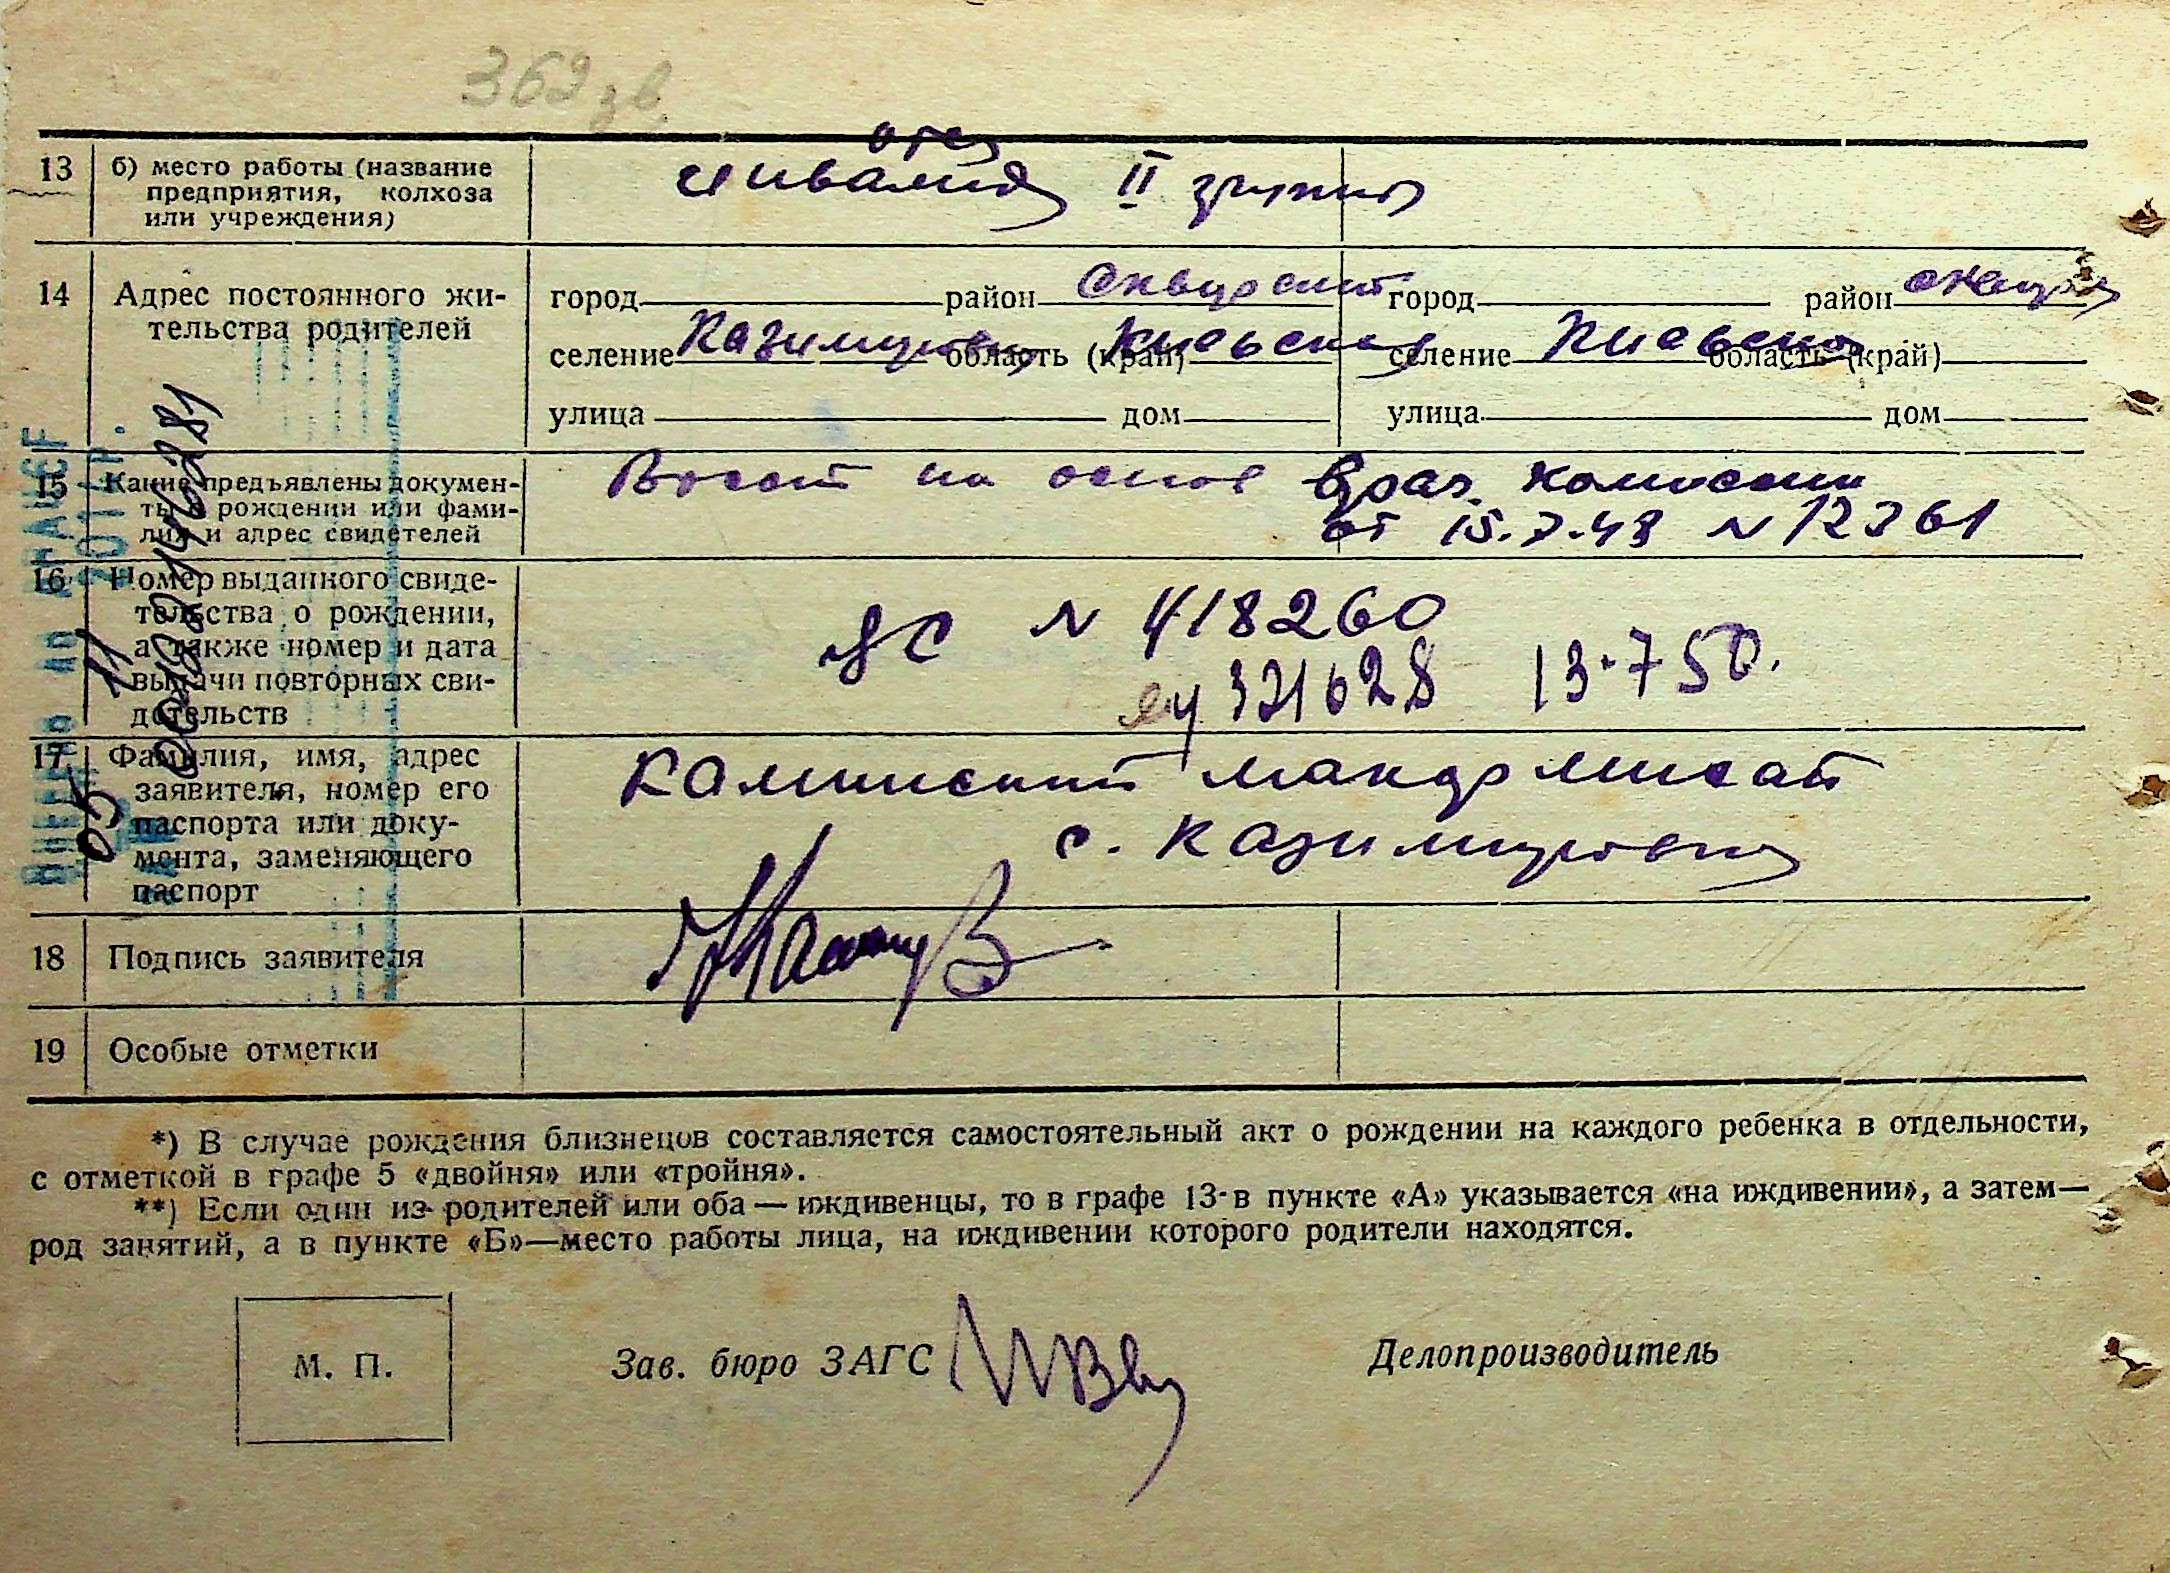 362 зв
13 б) место работы (название
предприятия, колхоза
или учреждения)
отец
инвалид II групы
14 Адрес постоянного жи-
тельства родителей
город район Сквирский
селение Казимировка область (край) Киевская
улица дом
город район
селение область (край) Киевская
улица дом
15 Какие предъявлены докумен-
ты о рождении или фами-
лия и адрес свидетелей
Восст на основ врач. комиссии
от 15.7.48 N 12361
16 Номер выданного свиде-
тельства о рождении,
а также номер и дата
выдачи повторных сви-
детельств
N 418260
321628 13.7 50.
17 Фамилия, имя, адрес
заявителя, номер его
паспорта или доку-
мента, заменяющего
паспорт
с. Казимировка
18 Подпись заявителя
19 Особые отметки
*) В случае рождения близнецов составляется самостоятельный акт о рождении на каждого ребенка в отдельности,
с отметкой в графе 5 «двойня» или «тройня».
**) Если один из родителей или оба — иждивенцы, то в графе 13-в пункте «А» указывается «на иждивении», а затем—
род занятий, а в пункте «Б»—место работы лица, на иждивении которого родители находятся.
М. П.
Зав. бюро ЗАГС
Делопроизводитель